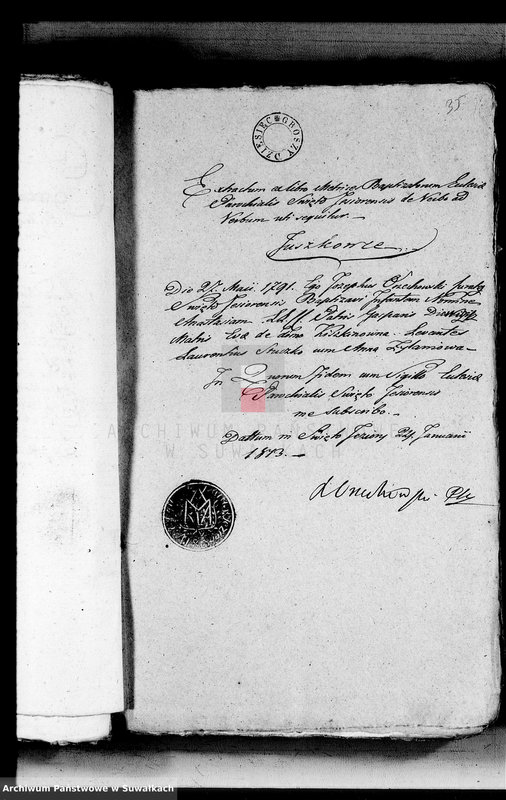 35
DZIESIĘC GROSZY
Extractum ex libro Matrices Baptizatorum Ecclesiæ
Parochialis Swięto Jesiorensis de Verbo ad
Verbum uti sequitur. —
Juszkowce
Die 27. Maii. 1791. Ego Josephus Orzechowski
Swięto Jesiorensis Baptizavi Infantem Nomine
Anastasiam. LL. CC. Patris Gasparis
Matris Eva de domo Levantes
Laurentius cum Anna
In Quorum fidem cum Sigillo Ecclesiæ
Parochialis Swięto Jesiorensis
me subscribo. —
Dattum in Swięto Jeziory 24 Januarii
1813. —
ARCHIWUM PAŃSTWOWE
W SUWAŁKACH
Archiwum Państwowe w Suwałkach